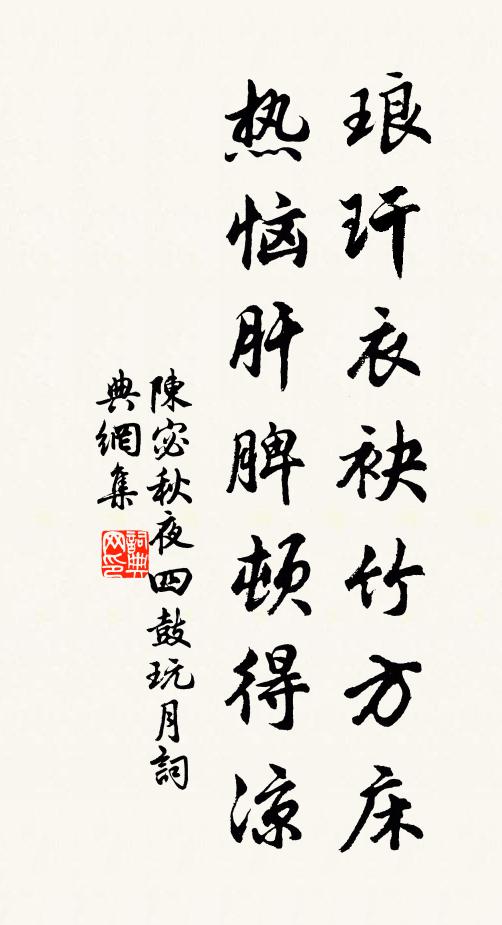 琅玕衣袂竹方床
热恼肝脾顿得凉
陳宓秋夜四鼓玩月詞
典網集
詞典网印